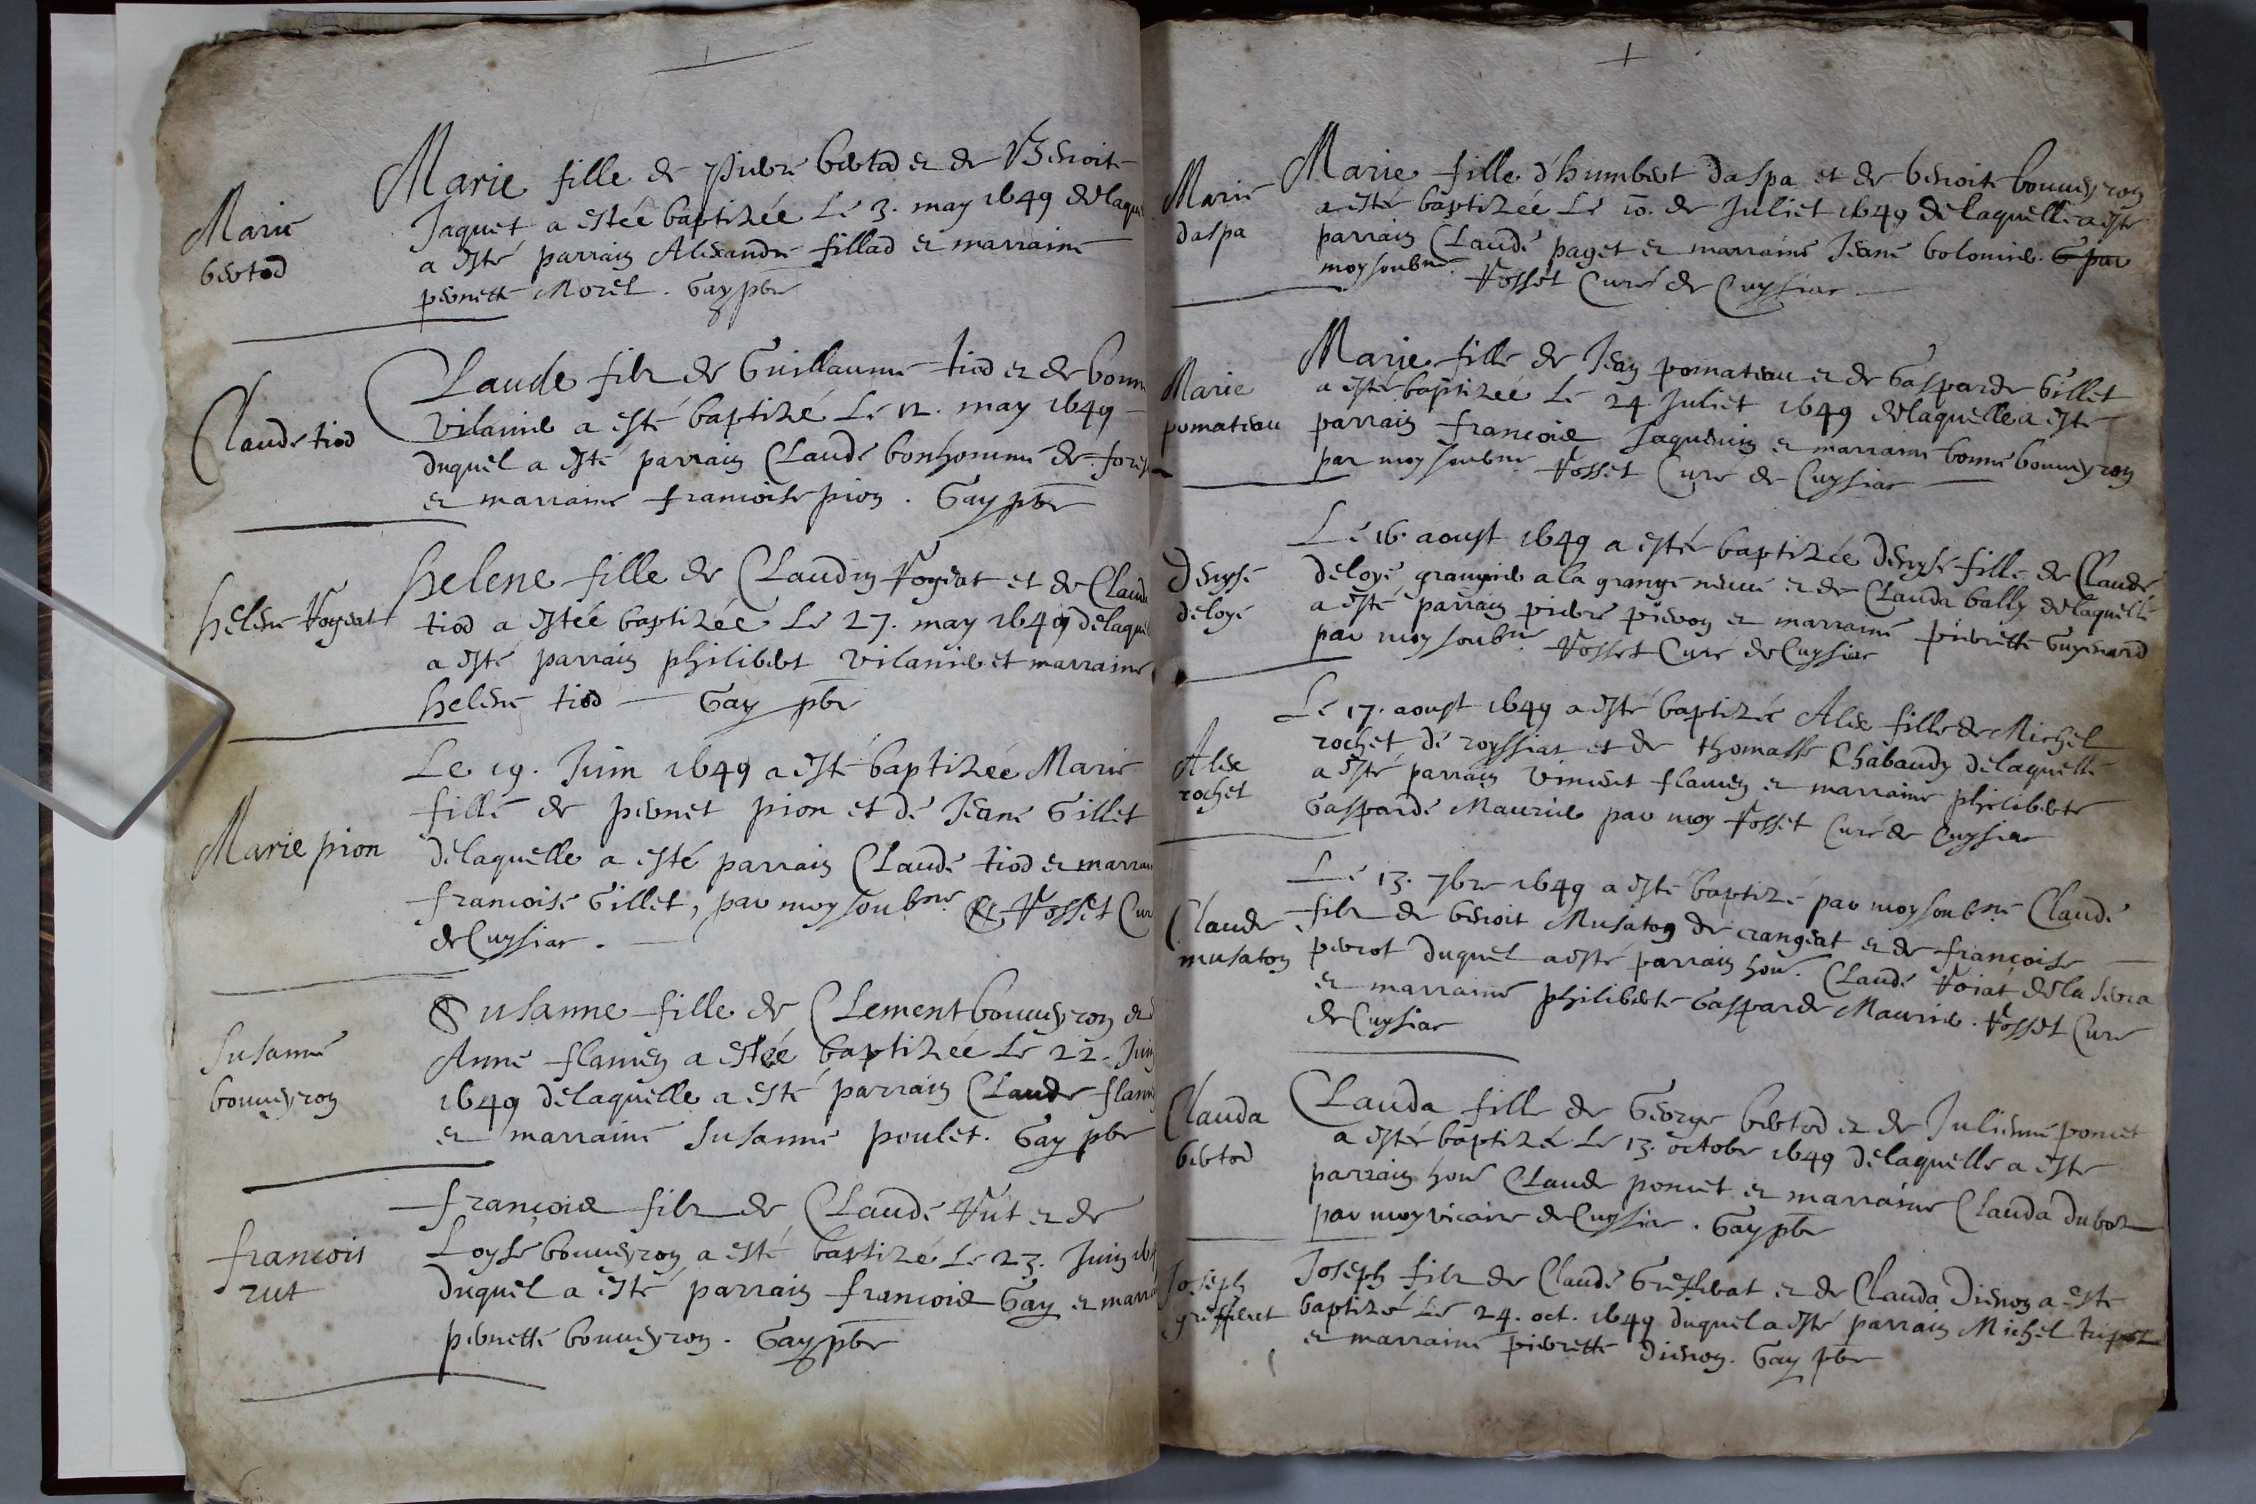 Marie
bertod
Marie fille de Pierre bertod et de Benoite
Jaquet a estée baptizée Le 3. may 1649 delaque
a esté parrain Alexandre fillad et marraine
pernette Morel. Gay pbr
Claude tiod
Claude filz de Guillaume tiod et de bonne
vilanie a esté baptizé Le 12. may 1649
duquel a esté parrain Claude bonhomme de
et marraine francoise pion. Gay pbr
helene Vogeat
helene fille de Claudin Vogeat et de Claud
tiod a estée baptizée Le 27. may 1649 delaque
a esté parrain philibert vilanie et marraine
helene tiod Gay pbr
Marie pion
Le 19. Juin 1649 a esté baptizée Marie
fille de pernet pion et de Jeane Gillet
delaquelle a esté parrain Claude tiod et marrai
francoise Gillet, par moy soubné Vosset Cur
de Cuysiac.
Susanne
bouueyron
Susanne fille de Clement bouueyron et d
Anne flamen a estée baptizée Le 22. Juin
1649 delaquelle a esté parrain Claude flam
et marraine Susanne poulet. Gay pbr
francois
rut
françois filz de Claude Rut et de
Loyse bouueyron a esté baptizé Le 23. Juin 16
duquel a esté parrain françois Gay et marra
pernette bouueyron. Gay pbr
Marie
daspa
Marie fille d'humbert daspa et de benoite bouueyron
a esté baptizée Le 10. de Juliet 1649 delaquelle a esté
parrain Claude paget et marraine Jeane bolomie. G par
moy soubné. Vosset Curé de Cuysiac
Marie
pomateau
Marie fille de Jean pomateau et de Gasparde Gillet
a esté baptizée Le 24 Juliet 1649 delaquelle a esté
parrain françois Jaquemin et marraine bonne bouueyron
par moy soubné Vosset Curé de Cuysiac
Denyse
deloye
Le 16. aoust 1649 a esté baptizée denyse fille de Claude
deloye, grangier a la grange neuue et de Clauda bally delaquelle
a esté parrain pierre pieron et marraine pierrette Guymard
par moy soubné. Vosset Curé de Cuysiac
Alex
rochet
Le 17. aoust 1649 a esté baptizée Alex fille de Michel
rochet de royssiat et de thomasse Chabaudy delaquelle
a esté parrain vincent flamen et marraine philiberte
Gasparde Maurie par moy Vosset Curé de Cuysiac
Claude
musaton
Le 13. 7bre 1649 a esté baptizé par moy soubné Claude
filz de benoit Musaton de crangeat et de françoise
perrot duquel a esté parrain hon. Claude Voiat de la serra
et marraine philiberte Gasparde Maurie. Vosset Curé
de Cuysiac
Clauda
bertod
Clauda fille de George bertod et de Julienne poncet
a esté baptizée Le 13. octobr 1649 delaquelle a esté
parrain hon Claude poncet et marraine Clauda duboz
par moy vicaire de Cuysiac. Gay pbr
Joseph
greffierat
Joseph filz de Claude et de Clauda Dienon a esté
baptizé Le 24. oct. 1649 duquel a esté parrain Michel
et marraine pierrette Dienon. Gay pbr